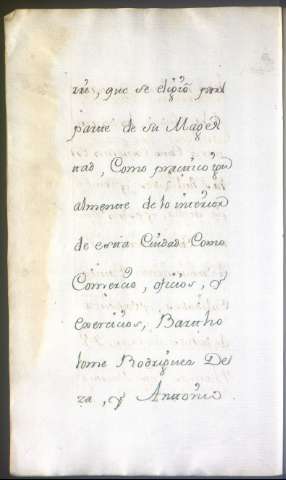 rɩ̃s, que se eligiō por
parte de su Mages
tad, Como practico ygu
almente de lo interior
de esta Ciudad Como
Comercio, oficios, y
exercicios, Bartho
lome Rodriguez De
za, y Antonio